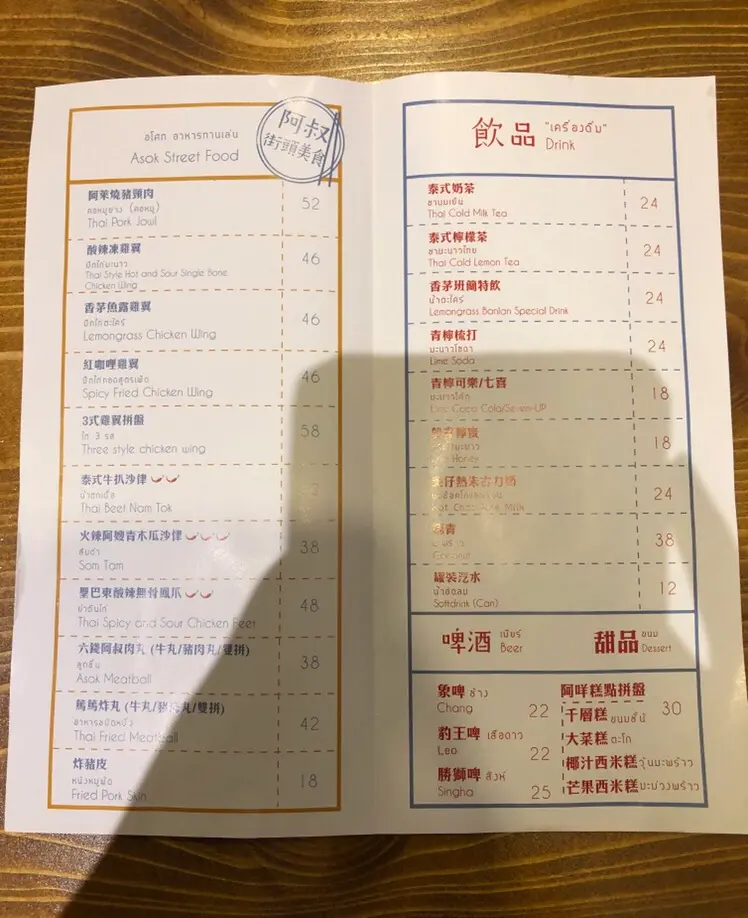 อโศก อาหารทานเล่น
Asok Street Food
阿叔
街頭美食
阿萊燒豬頸肉
คอหมูย่าง (คอหมู)
Thai Pork Jowl
52
酸辣凍雞翼
ปีกไก่มะนาว
Thai Style Hot and Sour Single Bone
Chicken Wing
46
香茅魚露雞翼
ปีกไก่ตะไคร้
Lemongrass Chicken Wing
46
紅咖喱雞翼
ปีกไก่ทอดสูตรเผ็ด
Spicy Fried Chicken Wing
46
3式雞翼拼盤
ไก่ 3 รส
Three style chicken wing
58
泰式牛扒沙律
น้ำตกเนื้อ
Thai Beef Nam Tok
火辣阿嫂青木瓜沙律
ส้มตำ
Som Tam
38
聖巴東酸辣無骨鳳爪
ยำตีนไก่
Thai Spicy and Sour Chicken Feet
48
六錢阿叔肉丸 (牛丸/豬肉丸/雙拼)
ลูกชิ้น
Asok Meatball
38
篤篤炸丸 (牛丸/豬肉丸/雙拼)
Thai Fried Meatball
42
炸豬皮
Fried Pork Skin
18
飲品 "เครื่องดื่ม"
Drink
泰式奶茶
ชานมเย็น
Thai Cold Milk Tea
24
泰式檸檬茶
ชามะนาวไทย
Thai Cold Lemon Tea
24
香茅班蘭特飲
น้ำตะไคร้
Lemongrass Banlan Special Drink
24
青檸梳打
มะนาวโซดา
Lime Soda
24
青檸可樂/七喜
Lime Coca Cola/Seven-UP
18
Honey
18
24
Coconut
38
罐裝汽水
น้ำอัดลม
Softdrink (Can)
12
啤酒 เบียร์
Beer
甜品 ขนม
Dessert
象啤 ช้าง
Chang
22
豹王啤 เสือดาว
Leo
22
勝獅啤 สิงห์
Singha
25
阿咩糕點拼盤
30
千層糕 ขนมชั้น
大菜糕 ตะโก้
椰汁西米糕 วุ้นมะพร้าว
芒果西米糕